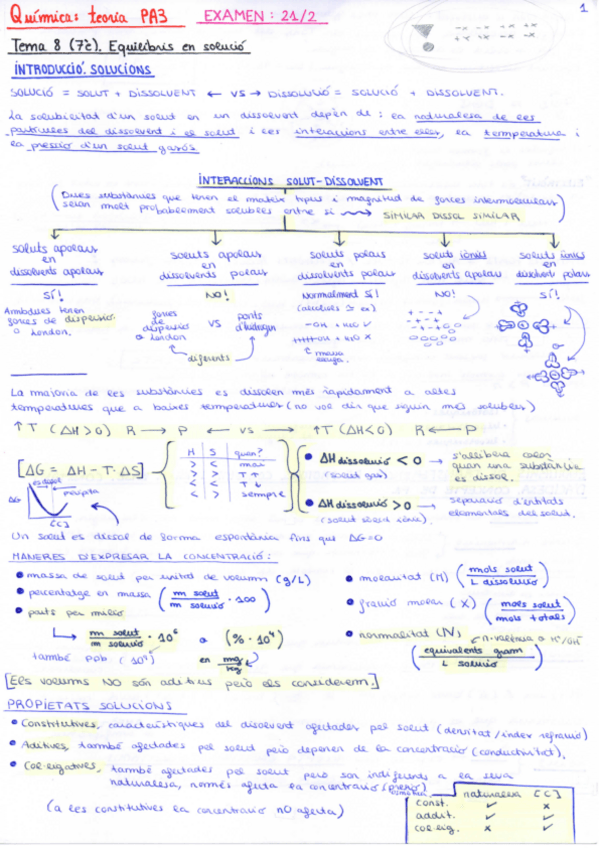 Química: teoria PA3 EXAMEN: 21/2 1
Tema 8 (7è). Equilibris en solució
INTRODUCCIÓ. SOLUCIONS
SOLUCIÓ = SOLUT + DISSOLVENT ← VS → DISSOLUCIÓ = SOLUCIÓ + DISSOLVENT.
La solubilitat d'un solut en un dissolvent depèn de: la naturalesa de les
partícules del dissolvent i el solut i les interaccions entre elles, la temperatura i
la pressió d'un solut gasós
INTERACCIONS SOLUT-DISSOLVENT
(Dues substàncies que tenen el mateix tipus i magnitud de forces intermoleculars
seran molt probablement solubles entre si SIMILAR DISSOL SIMILAR)
soluts apolars en dissolvents apolars
soluts apolars en dissolvents polars
soluts polars en dissolvents polars
soluts iònics en dissolvents apolars
soluts iònics en dissolvents polars
SÍ! NO! Normalment SÍ! NO! SÍ!
Ambdues tenen forces de dispersió o London.
forces de dispersió o London VS ponts d'hidrogen
diferents
(alcohols ex)
-OH + H2O ✓
-OH + H2O X
↑ massa
La majoria de les substàncies es dissolen més ràpidament a altes
temperatures que a baixes temperatures (no vol dir que siguin més solubles)
↑T (ΔH>0) R → P ← VS → ↑T (ΔH<0) R ← P
[ΔG = ΔH - T·ΔS]
H S quan?
> < mai
> > T↑
< < T↓
< > sempre
• ΔH dissolució < 0 → s'allibera calor quan una substància es dissol.
(solut gas)
• ΔH dissolució > 0 → separació d'entitats elementals del solut.
(solut sòlid iònic)
ΔG es dissol precipita [C]
Un solut es dissol de forma espontània fins que ΔG=0
MANERES D'EXPRESAR LA CONCENTRACIÓ:
• massa de solut per unitat de volumn (g/L)
• percentatge en massa (m solut / m solució · 100)
• parts per milió
→ m solut / m solució · 10⁶ o (% · 10⁴)
també ppb (10⁹) en mg/kg
• molaritat (M) (mols solut / L dissolució)
• fració molar (X) (mols solut / mols totals)
• normalitat (N) n·valència o H⁺/OH⁻
(equivalents gram / L solució)
[Els volums NO són aditius però els considerem.]
PROPIETATS SOLUCIONS
• Constitutives, característiques del disolvent afectades pel solut (densitat/índex refracció)
• Aditives, també afectades pel solut però depenen de la concentració (conductivitat).
• Col·ligatives, també afectades pel solut però són indiferents a la seva
naturalesa, només afecta la concentració (pressió osmòtica).
(a les constitutives la concentració nO afecta)
naturalesa [C]
const. ✓ X
addit. ✓ ✓
col·lig. X ✓